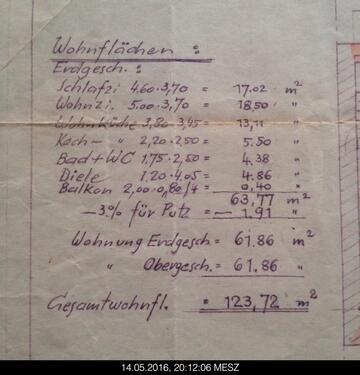 Wohnflächen :
Erdgesch. :
Schlafzi 4.60·3,70 = 17.02 m²
Wohnzi. 5.00·3,70 = 18,50 "
Wohnküche 3,80·3,45 = 13,11 "
Koch- " 2,20·2,50 = 5.50 "
Bad+WC 1.75·2,50 = 4.38 "
Diele 1,20·4.05 = 4.86 "
Balkon 2,00·0,80/4 = 0,40 "
63,77 m²
- 3% für Putz = - 1.91 "
Wohnung Erdgesch = 61.86 m²
" Obergesch. = 61.86 "
Gesamtwohnfl. = 123,72 m²
14.05.2016, 20:12:06 MESZ